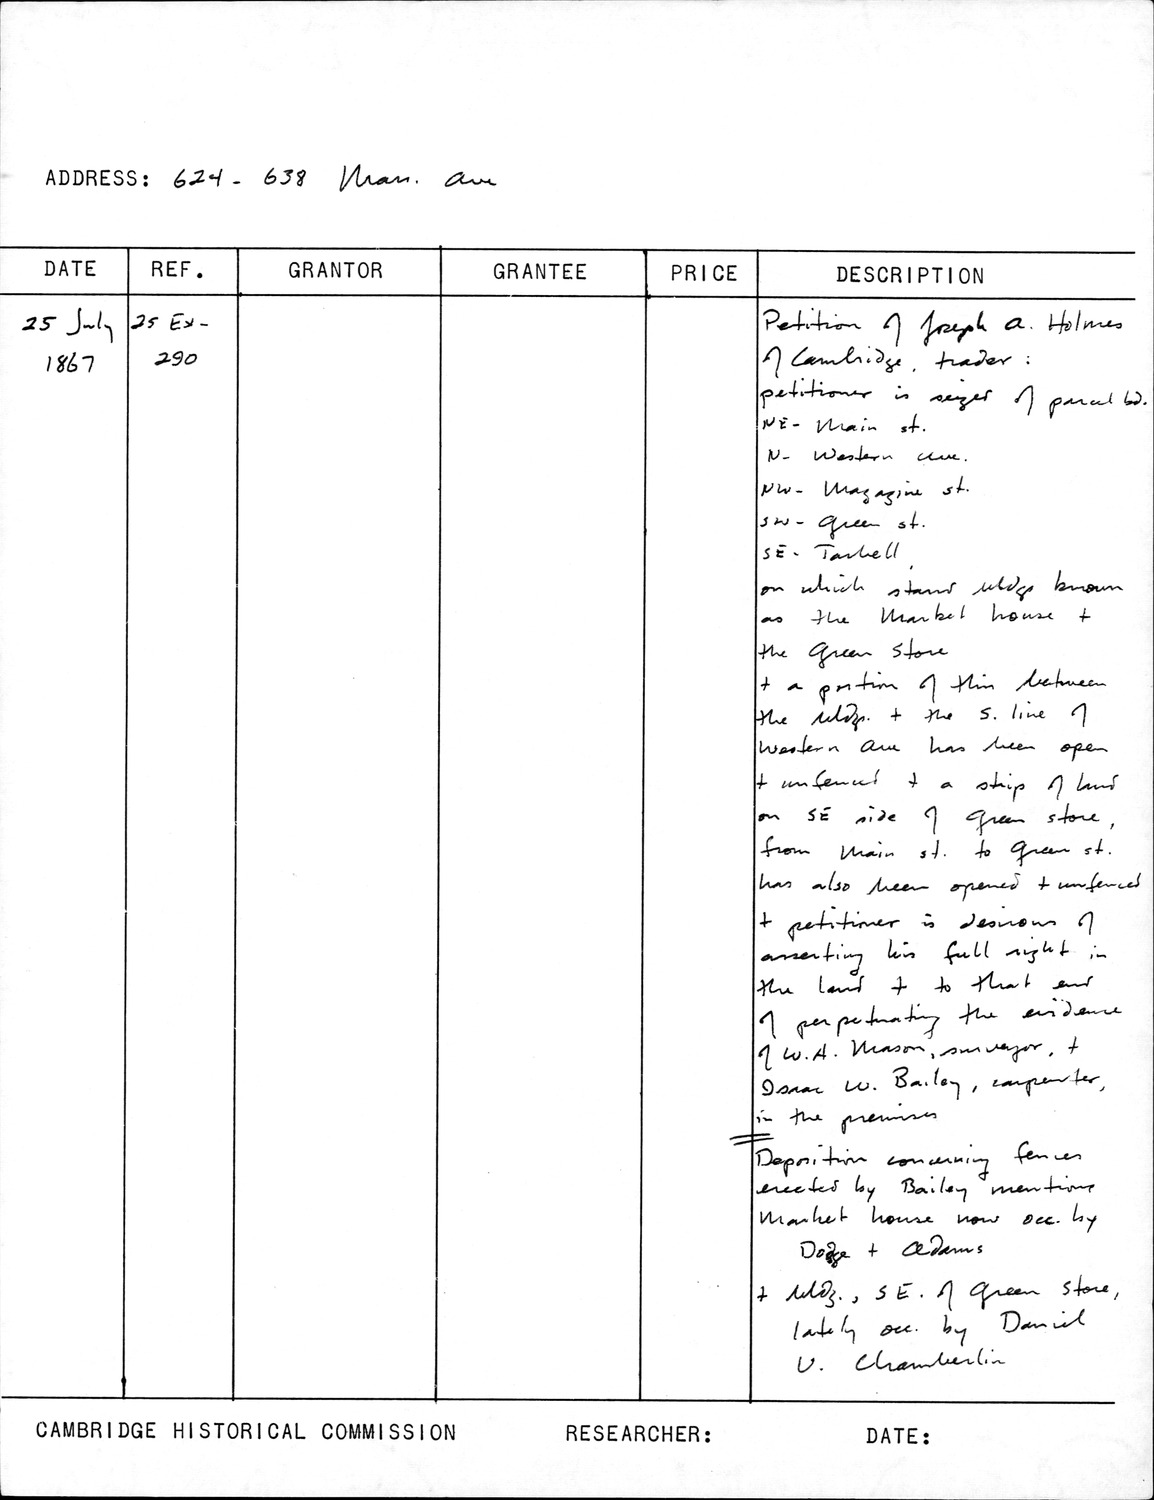 ADDRESS: 624 - 638 Mass. Ave
DATE REF. GRANTOR GRANTEE PRICE DESCRIPTION
25 July 25 Ex-
1867 290
Petition of Joseph A. Holmes
of Cambridge, trader :
petitioner is seized of parcel bd.
NE- Main st.
N- Western ave.
NW- Magazine st.
SW- Green st.
SE- Tarbell,
on which stand bldgs known
as the Market house +
the Green Store
+ a portion of this between
the bldgs. + the S. line of
Western Ave has been open
+ unfenced + a strip of land
on SE side of Green store,
from Main st. to Green st.
has also been opened + unfenced
+ petitioner is desirous of
asserting his full right in
the land + to that end
of perpetuating the evidence
of W.A. Mason, surveyor, +
Isaac W. Bailey, carpenter,
in the premises
Deposition concerning fences
erected by Bailey mentions
Market house now occ. by
Dodge + Adams
+ bldg., SE. of Green Store,
lately occ. by Daniel
U. Chamberlin
CAMBRIDGE HISTORICAL COMMISSION RESEARCHER: DATE: